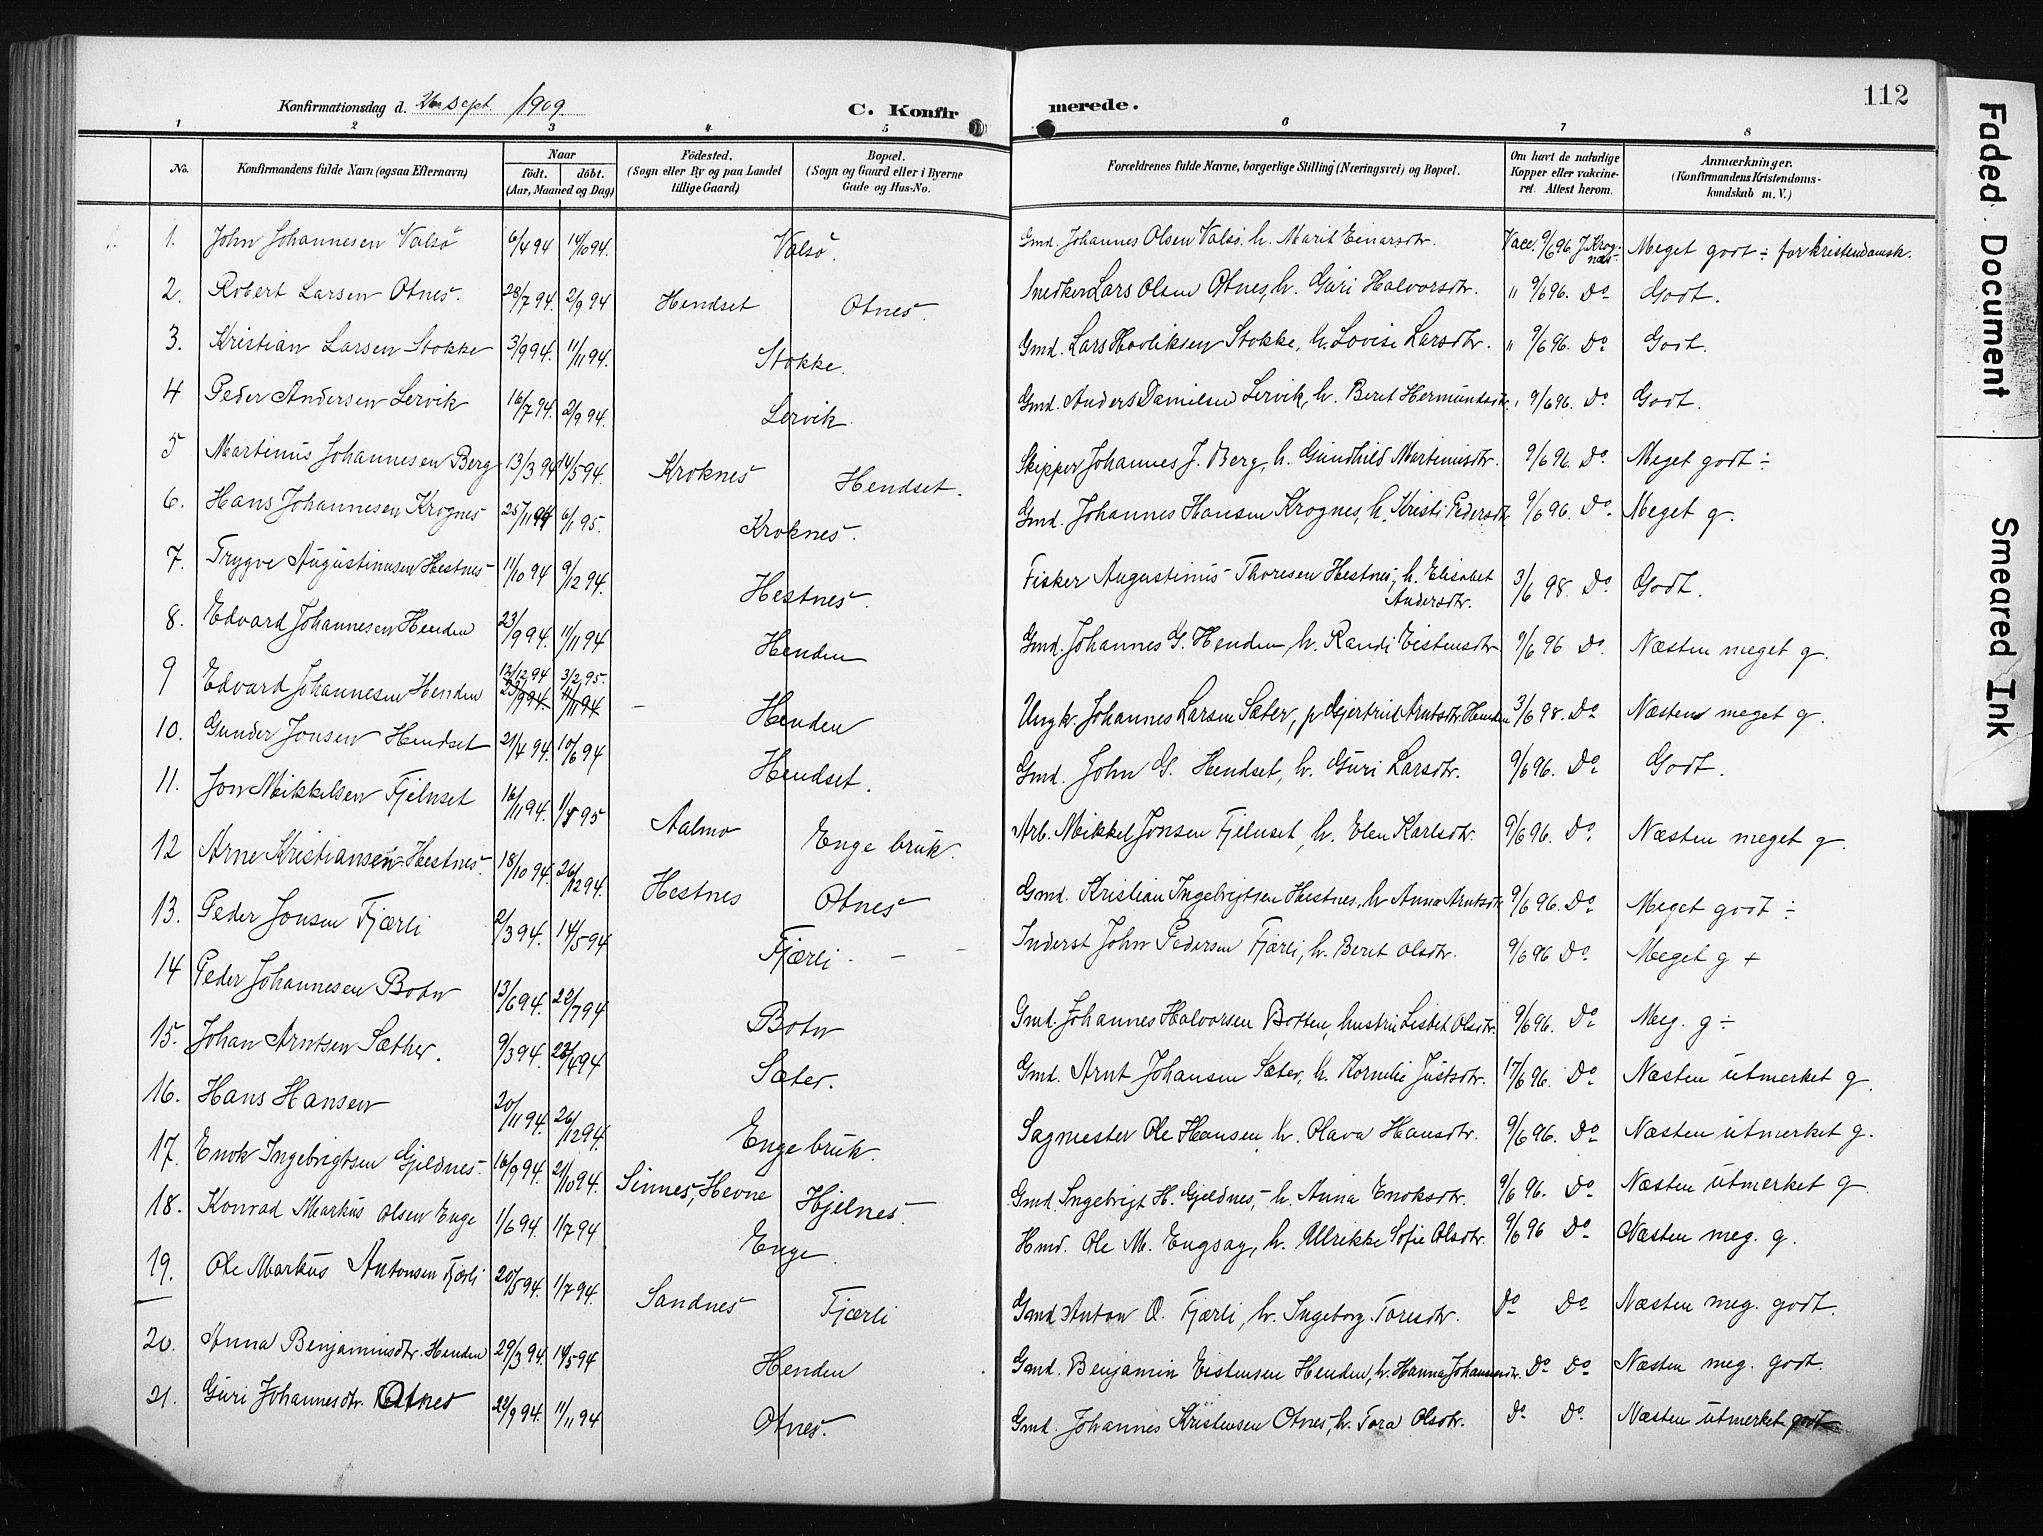 112
Konfirmationsdag d. 26 Sept. 1909.
C. Konfirmerede.
1 2 3 4 5 6 7 8
No. Konfirmandens fulde Navn (ogsaa Efternavn) Naar født. døbt. (Aar, Maaned og Dag) Fødested. (Sogn eller By og paa Landet tillige Gaard) Bopæl. (Sogn og Gaard eller i Byerne Gade og Hus-No. Forældrenes fulde Navne, borgerlige Stilling (Næringsvei) og Bopæl. Om havt de naturlige Kopper eller vakcineret. Attest herom. Anmærkninger. (Konfirmandens Kristendomskundskab m. V.)
1. John Johannesen Valsø 6/4 94 14/10 94. Valsø. Gmd. Johannes Olsen Valsø, h. Marit Einarsdtr. Vacc. 9/6 96. J. Krognæs Meget godt ÷ for kristendomsk.
2. Robert Larsen Otnes. 28/7 94. 2/9 94 Hendset Otnes. Snedker Lars Olsen Otnes, h. Guri Halvorsdtr. " 9/6 96. Do Godt.
3. Kristian Larsen Stokke 3/9 94. 11/11 94. Stokke. Gmd. Lars Stokke, h. Lovise Larsdtr. " 9/6 96. Do Godt.
4 Peder Andersen Lervik 16/7 94. 2/9 94. Lervik Gmd. Anders Danielsen Lervik, h. Beret Hermundsdtr. " 9/6 96. Do Godt.
5 Martinus Johannesen Berg 13/3 94 14/5 94. Kroknes Hendset. Skipper Johannes J. Berg, h. Gundhild Martinusdtr. 9/6 96. Do. Meget godt ÷
6. Hans Johannesen Krognes 25/11 94 6/1 95. Kroknes. Gmd. Johannes Hansen Krognes, h. Kristi Pedersdtr 9/6 96. Do. Meget g.
7. Trygve Augustinusen Hestnes 11/10 94 9/12 94. Hestnes. Fisker Augustinus Thoresen Hestnes, h. Elisabet Andersdtr. 3/6 98. Do Godt.
8. Edvard Johannesen Henden 23/9 94. 11/11 94 Henden Gmd. Johannes G. Henden, h. Randi Eistensdtr 9/6 96 Do. Næsten meget g.
9 Edvard Johannesen Henden 12/12 94 3/2 95. 23/9 94. 11/11 94 - Henden Ungk. Johannes Larsen Sæter, p Gjertrud Arntsdtr. Henden 3/6 98. Do Næsten meget g.
10. Gunder Jonsen Hendset 21/4 94. 10/6 94 Hendset. Gmd. John G. Hendset, h. Guri Larsdtr. 9/6 96. Do Godt.
11. Jon Mikkelsen Fjelnset 16/11 94. 1/1 95 Aalmo Enge bruk. Arb. Mikkel Jonsen Fjelnset, h. Elen Karlsdtr. 9/6 96. Do Næsten meget g.
12 Arne Kristiansen Hestnes. 18/10 94. 26/12 94. Hestnes Otnes Gmd. Kristian Ingebrigtsen Hestnes, h Anna Arntsdtr 9/6 96. Do Meget godt ÷
13. Peder Jonsen Fjærli 2/3 94. 14/5 94 Fjærli - - - Inderst John Pedersen Fjærli, h. Beret Olsdtr. 9/6 96 Do. Meget g +
14 Peder Johannesen Botn 13/6 94. 22/7 94 Botn Gmd. Johannes Halvorsen Botten, hustru Lisbet Olsdtr. 9/6 96. Do Meg. g ÷
15. Johan Arntsen Sæther. 9/3 94. 23/4 94 Sæter. Gmd. Arnt Johansen Sæter, h. Kornelie Justsdtr. 17/6 96. Do Næsten utmerket g
16. Hans Hansen 20/11 94. 26/12 94. Enge bruk. Sagmester Ole Hansen h. Olava Hansdtr. 9/6 96. Do Næsten utmerket g.
17. Enok Ingebrigtsen Gjeldnes. 16/9 94. 21/10 94. Sinnes, Hevne Hjelnes. Gmd. Ingebrigt H. Gjeldnes, h. Anna Enoksdtr. 9/6 96. Do Næsten utmerket g.
18. Konrad Markus Olsen Enge 1/6 94. 1/7 94 Enge. Hmd. Ole M. Engsag, h. Ullrikke Sofie Olsdtr. 9/6 96 Do Næsten meg. g.
19. Ole Markus Antonsen Fjærli 20/5 94. 1/7 94. Sandnes Fjærli Gmd Anton O. Fjærli, h. Ingeborg Toresdtr. Do Do Næsten meg. godt.
20. Anna Benjaminsdtr. Henden 29/3 94. 14/5 94 Henden Gmd. Benjamin Eistensen Henden, h. Hanna Johannesdtr. Do Do Næsten meg. godt.
21. Guri Johannesdtr. Otnes 22/9 94. 11/11 94 Otnes. Gmd. Johannes Kristensen Otnes, h. Tora Olsdtr. Do Do. Næsten utmerket godt
Faded Document
Smeared Ink